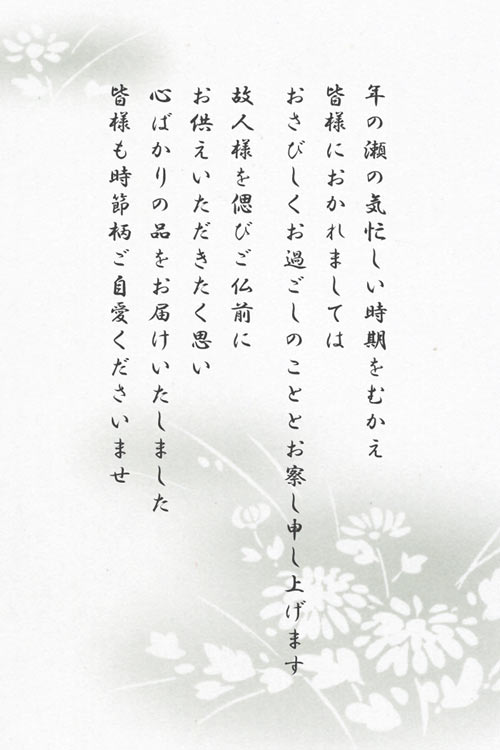 年の瀬の気忙しい時期をむかえ
皆様におかれましては
おさびしくお過ごしのこととお察し申し上げます
故人様を偲びご仏前に
お供えいただきたく思い
心ばかりの品をお届けいたしました
皆様も時節柄ご自愛くださいませ